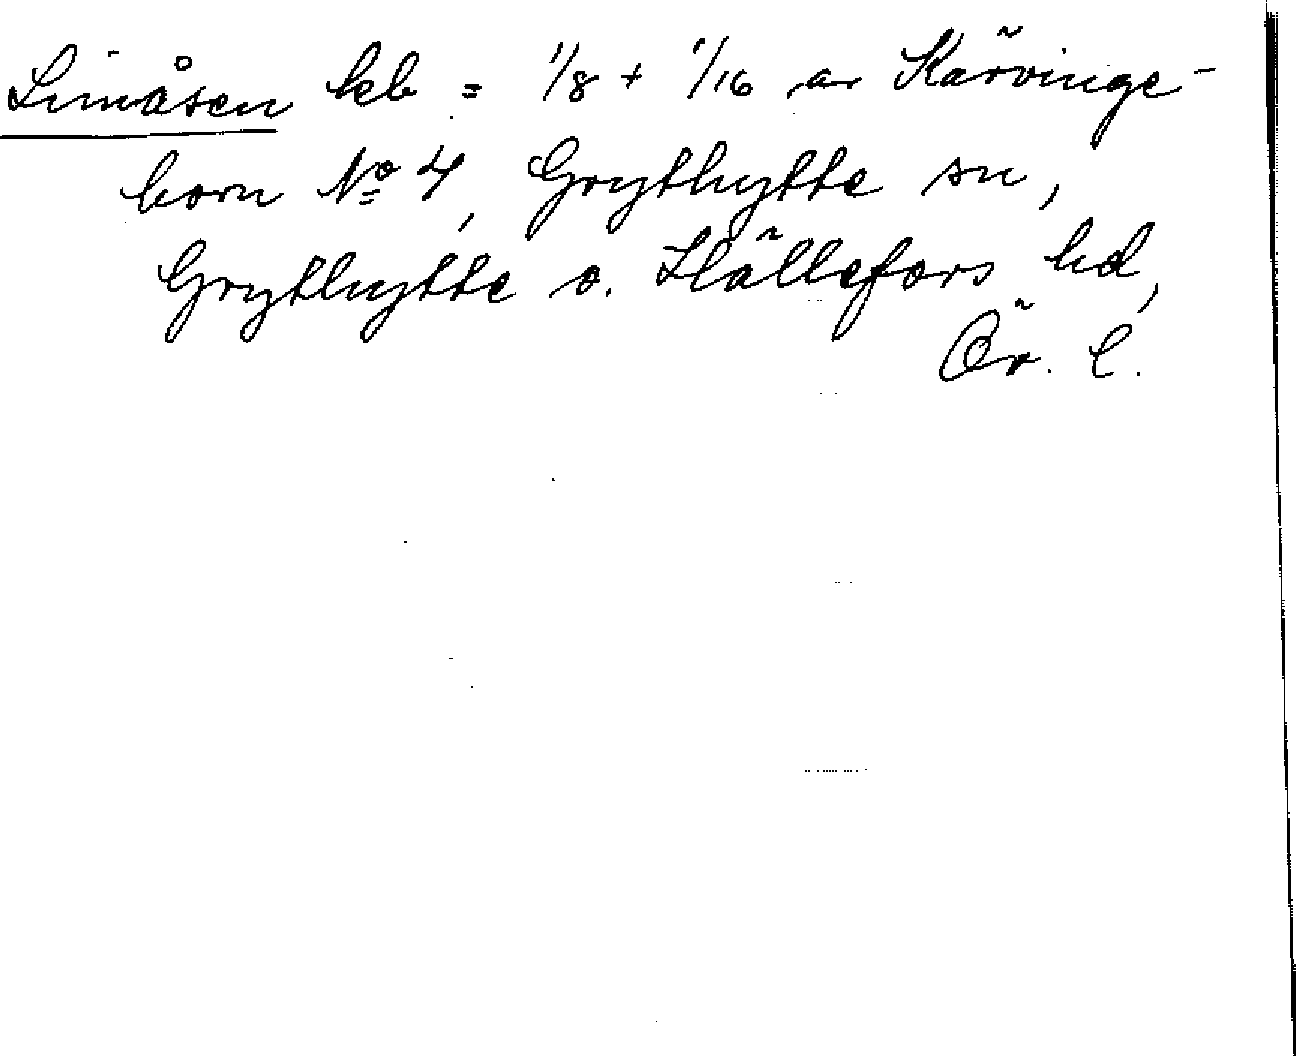 Limåsen = 1/8 + 1/16 av Kärvinge-
born No 4, Grythytte sn,
Grythytte o. Hällefors hd,
Ör. l.